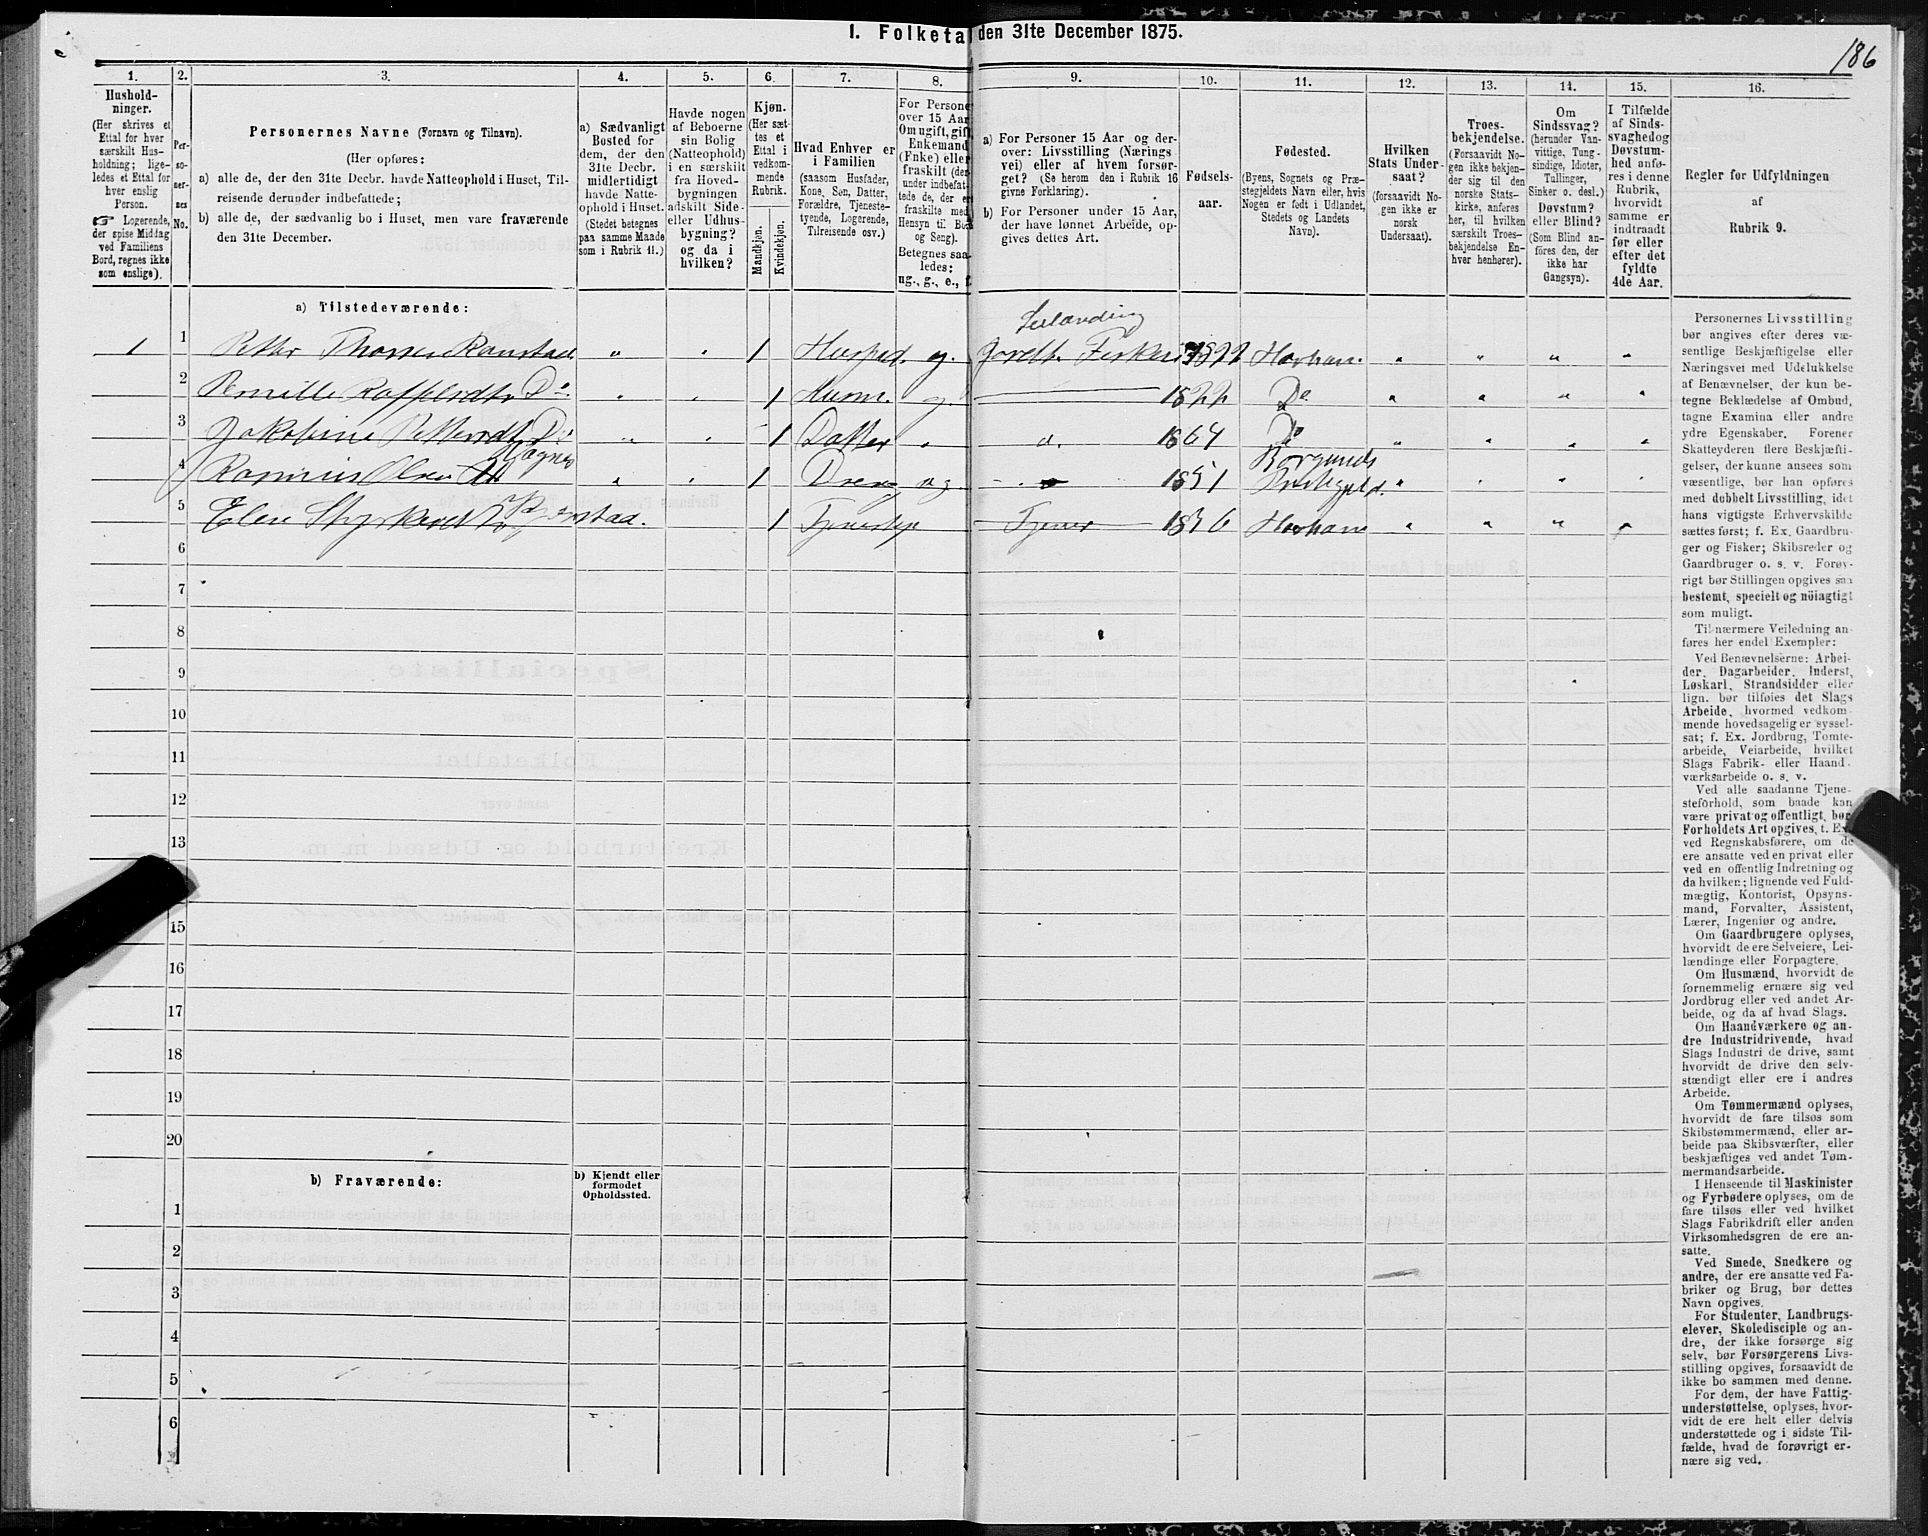 I. Folketal den 31te December 1875.
186
1. 2. 3. 4. 5. 6. 7. 8. 9. 10. 11. 12. 13. 14. 15. 16.
Hushold-
ninger.
(Her skrives et
Ettal for hver
særskilt Hus-
holdning; lige-
ledes et Ettal for
hver enslig
Person.
☞ Logerende,
der spise Middag
ved Familiens
Bord, regnes ikke
som enslige).
Per-
so-
ner-
nes
No.
Personernes Navne (Fornavn og Tilnavn).
(Her opføres:
a) alle de, der den 31te Decbr. havde Natteophold i Huset, Til-
reisende derunder indbefattede;
b) alle de, der sædvanlig bo i Huset, men vare fraværende
den 31te December.
a) Sædvanligt
Bosted for
dem, der den
31te Decbr.
midlertidigt
havde Natte-
ophold i Huset.
(Stedet betegnes
paa samme Maade
som i Rubrik 11.)
Havde nogen
af Beboerne
sin Bolig
(Natteophold)
i en særskilt
fra Hoved-
bygningen
adskilt Side-
eller Udhus-
bygning?
og da i
hvilken?
Kjøn.
(Her sæt-
tes et
Ettal i
vedkom-
mende
Rubrik.
Mandkjøn.
Kvindekjøn.
Hvad Enhver er
i Familien
(saasom Husfader,
Kone, Søn, Datter,
Forældre, Tjeneste-
tyende, Logerende,
Tilreisende osv.)
For Persone
over 15 Aar
Om ugift, gift
Enkemand
(Enke) eller
fraskilt (der-
under indbefat-
tede de, der er
fraskilte med
Hensyn til Bo
og Seng).
Betegnes saa-
ledes:
ug., g., e., f.
a) For Personer 15 Aar og der-
over: Livsstilling (Nærings
vei) eller af hvem forsør-
get? (Se herom den i Rubrik 16
givne Forklaring).
b) For Personer under 15 Aar,
der have lønnet Arbeide, op-
gives dettes Art.
Fødsels-
aar.
Fødested.
(Byens, Sognets og Præ-
stegjeldets Navn eller, hvis
Nogen er født i Udlandet,
Stedets og Landets
Navn).
Hvilken
Stats Under-
saat?
(forsaavidt No-
gen ikke er
norsk
Undersaat).
Troes-
bekjendelse.
(Forsaavidt No-
gen ikke bekjen-
der sig til den
norske Stats-
kirke, anføres
her, til hvilken
særskilt Troes-
bekjendelse En-
hver henhører).
Om
Sindssvag?
(herunder Van-
vittige, Tung-
sindige, Idioter,
Tullinger,
Sinker o. desl.)
Døvstum?
eller Blind?
(Som Blind an-
føres den, der
ikke har
Gangsyn).
I Tilfælde
af Sinds-
svaghed og
Døvstum-
hed anfø-
res i denne
Rubrik,
hvorvidt
samme er
indtraadt
før eller
efter det
fyldte
4de Aar.
Regler for Udfyldningen
af
Rubrik 9.
a) Tilstedeværende:
Leilænding
1 1 Petter Ranstad " " 1 g. Jordb. Fisker 1822 Havham " " " "
2 Pernille Do " " 1 g. 1822 Do " " " "
3 Jakobine Do " " 1 Datter " " 1864 Do " " " "
4 Rasmus Olsen " " 1 Dreng ug 1851 Borgunds " " " "
5 1 Tjener 1856 Havham " " " "
6
7
8
9
10
11
12
13
15
16
17
18
19
20
b) Fraværende:
b) Kjendt eller
formodet
Opholdssted.
1
2
3
4
5
6
Personernes Livsstilling
bør angives efter deres væ-
sentlige Beskjæftigelse eller
Næringsvei med Udelukkelse
af Benævnelser, der kun be-
tegne Beklædelse af Ombud,
tagne Examina eller andre
ydre Egenskaber. Forener
Skatteyderen flere Beskjæfti-
gelser, der kunne ansees som
væsentlige, bør han opføres
med dobbelt Livsstilling, idet
hans vigtigste Erhvervskilde
sættes først; f. Ex. Gaardbru-
ger og Fisker; Skibsreder og
Gaardbruger o. s. v. Forøv-
rigt bør Stillingen opgives saa
bestemt, specielt og nöiagtigt
som muligt.
Til nærmere Veiledning an-
føres her endel Exempler:
Ved Benævnelserne: Arbei-
der, Dagarbeider, Inderst,
Løskarl, Strandsidder eller
lign. bør tilføies det Slags
Arbeide, hvormed vedkom-
mende hovedsagelig er syssel-
sat; f. Ex. Jordbrug, Tomte-
arbeide, Veiarbeide, hvilket
Slags Fabrik- eller Haand-
værksarbeide o. s. v.
Ved alle saadanne Tjene-
steforhold, som baade kan
være privat og offentligt, bør
Forholdets Art opgives, t. Ex.
ved Regnskabsførere, om de
ere ansatte ved en privat eller
ved en offentlig Indretning og
da hvilken; lignende ved Fuld-
mægtig, Kontorist, Opsyns-
mand, Forvalter, Assistent,
Lærer, Ingeniør og andre.
Om Gaardbrugere oplyses,
hvorvidt de ere Selveiere, Lei-
lændinge eller Forpagtere.
Om Husmænd, hvorvidt de
fornemmelig ernære sig ved
Jordbrug eller ved andet Ar-
beide, og da af hvad Slags.
Om Haandværkere og an-
dre Industridrivende, hvad
Slags Industri de drive, samt
hvorvidt de drive den selv-
stændigt eller ere i andres
Arbeide.
Om Tømmermænd oplyses,
hvorvidt de fare tilsøs som
Skibstømmermænd, eller ar-
beide paa Skibsværfter, eller
beskjæftiges ved andet Tøm-
mermandsarbeide.
I Henseende til Maskinister
og Fyrbødere oplyses, om de
fare tilsøs eller ved hvilket
Slags Fabrikdrift eller anden
Virksomhedsgren de ere an-
satte.
Ved Smede, Snedkere og
andre, der ere ansatte ved Fa-
briker og Brug, bør dettes
Navn opgives.
For Studenter, Landbrugs-
elever, Skoledisciple og an-
dre, der ikke forsørge sig
selv, bør Forsørgerens Livs-
stilling opgives, forsaavidt de
ikke bo sammen med denne.
For dem, der have Fattig-
understøttelse, oplyses, hvor-
vidt de ere helt eller delvis
understøttede og i sidste Til-
fælde, hvad de forøvrigt er-
nære sig ved.